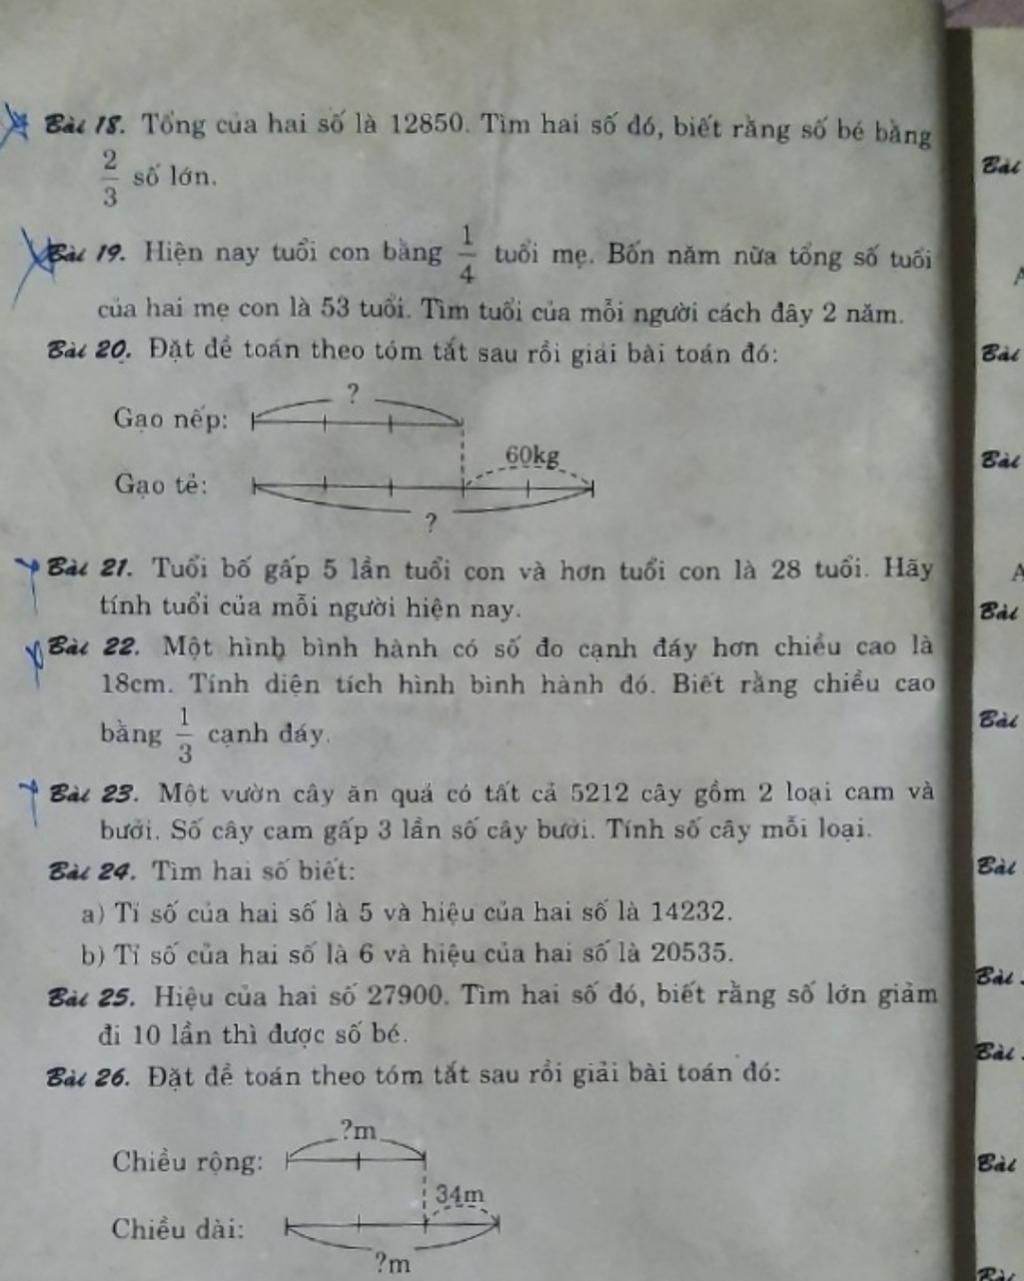 Bài 18. Tổng của hai số là 12850. Tìm hai số đó, biết rằng số bé bằng
2/3 số lớn.
Bài 19. Hiện nay tuổi con bằng 1/4 tuổi mẹ. Bốn năm nữa tổng số tuổi
của hai mẹ con là 53 tuổi. Tìm tuổi của mỗi người cách đây 2 năm.
Bài 20. Đặt đề toán theo tóm tắt sau rồi giải bài toán đó:
?
Gạo nếp:
60kg
Gạo tẻ:
?
Bài 21. Tuổi bố gấp 5 lần tuổi con và hơn tuổi con là 28 tuổi. Hãy
tính tuổi của mỗi người hiện nay.
Bài 22. Một hình bình hành có số đo cạnh đáy hơn chiều cao là
18cm. Tính diện tích hình bình hành đó. Biết rằng chiều cao
bằng 1/3 cạnh đáy.
Bài 23. Một vườn cây ăn quả có tất cả 5212 cây gồm 2 loại cam và
bưởi. Số cây cam gấp 3 lần số cây bưởi. Tính số cây mỗi loại.
Bài 24. Tìm hai số biết:
a) Tỉ số của hai số là 5 và hiệu của hai số là 14232.
b) Tỉ số của hai số là 6 và hiệu của hai số là 20535.
Bài 25. Hiệu của hai số 27900. Tìm hai số đó, biết rằng số lớn giảm
đi 10 lần thì được số bé.
Bài 26. Đặt đề toán theo tóm tắt sau rồi giải bài toán đó:
?m
Chiều rộng:
34m
Chiều dài:
?m
Bài
Bài
Bài
Bài
Bài
Bài
Bài
Bài
Bài